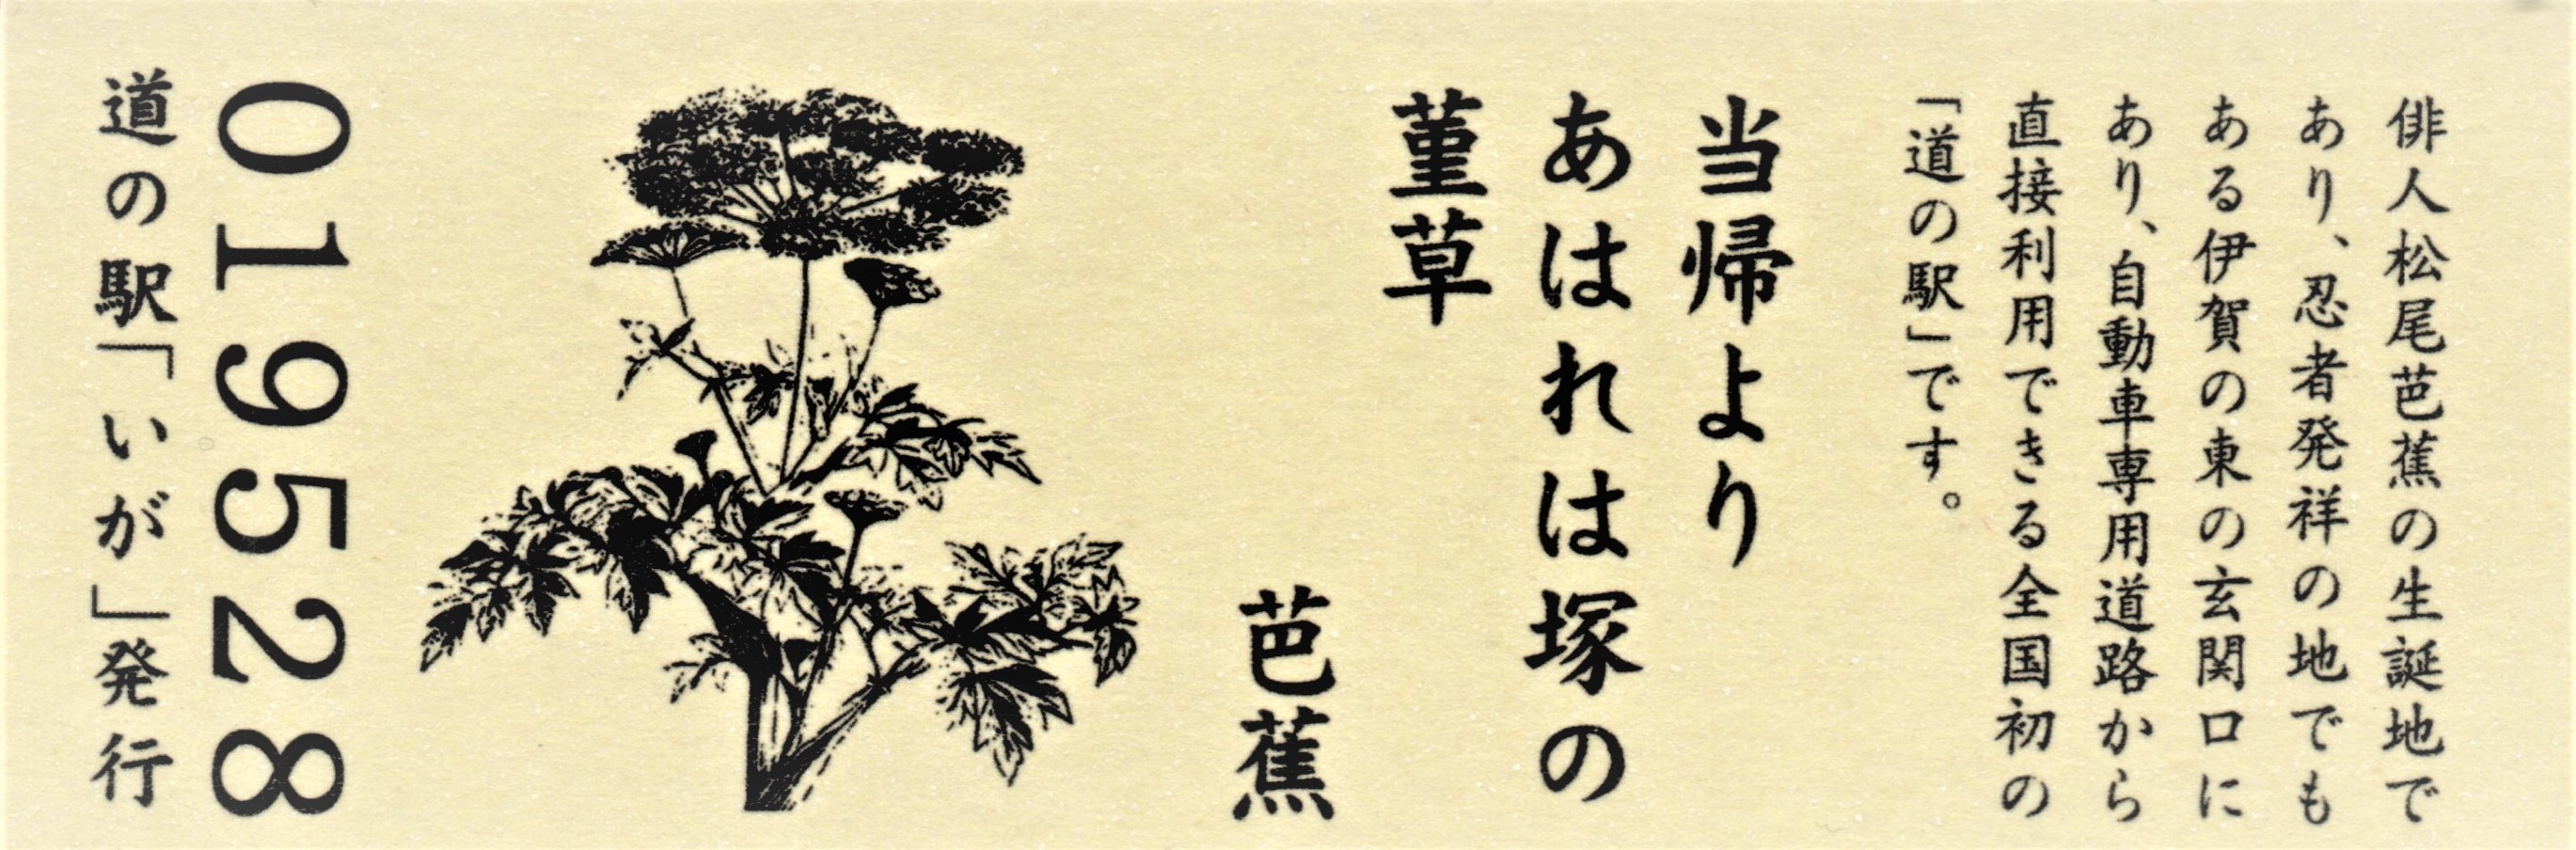 俳人松尾芭蕉の生誕地で
あり、忍者発祥の地でも
ある伊賀の東の玄関口に
あり、自動車専用道路から
直接利用できる全国初の
「道の駅」です。
当帰より
あはれは塚の
菫草
芭蕉
019528
道の駅「いが」発行